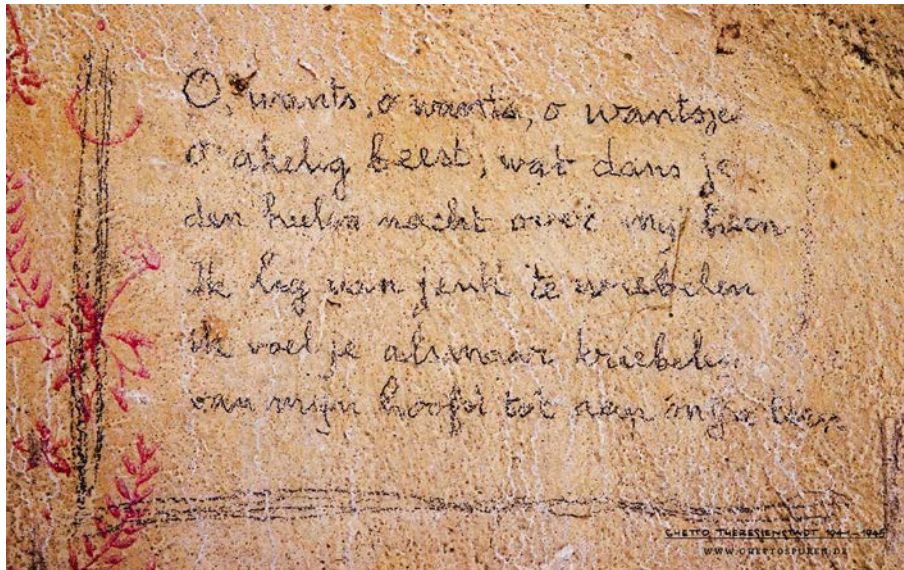 O, wants, o wants, o wantsje
o akelig beest, wat dans je
den heelen nacht over mij heen
Ik lig van jeuk te wriebelen
ik voel je alsmaar kriebelen
van mijn hoofd tot aan mijn teen.
GHETTO THERESIENSTADT 1941-1945
WWW.GHETTOSPUREN.DE